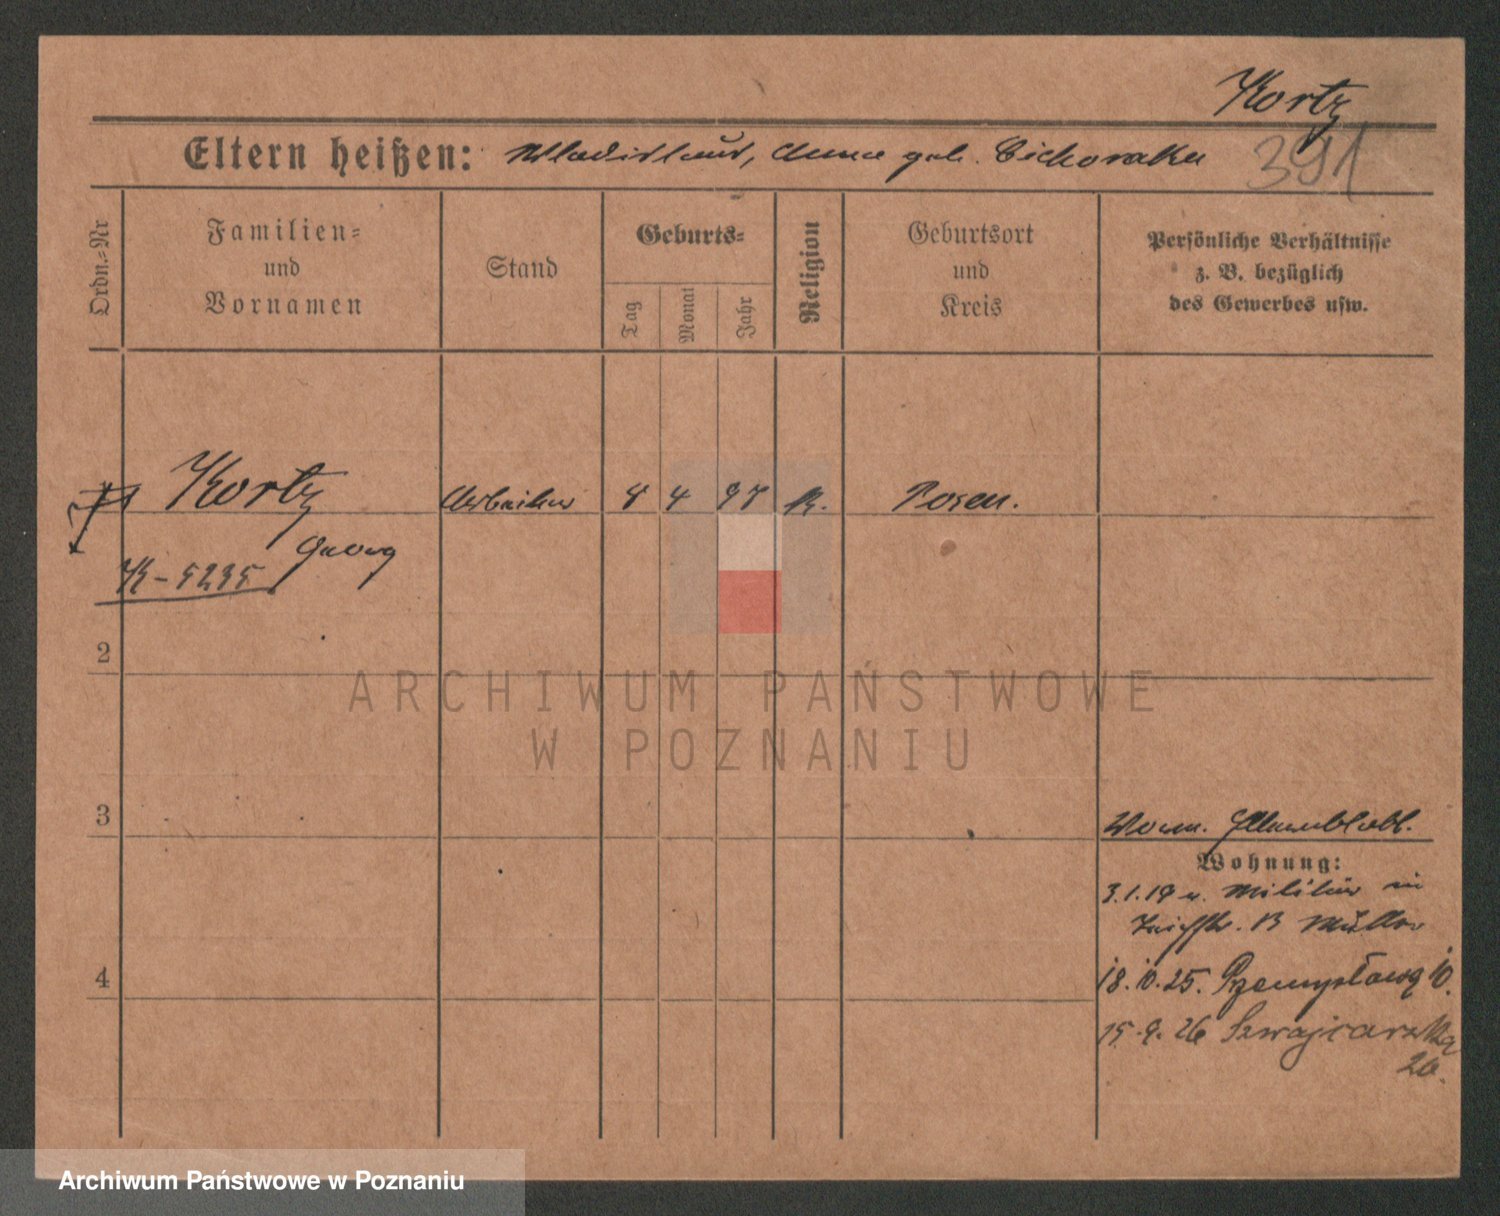 Kortz
391
Eltern heißen: Wladislaus, Anna geb. Cichoraka
Ordn.-Nr
Familien=
und
Vornamen
Stand
Geburts=
Tag
Monat
Jahr
Religion
Geburtsort
und
Kreis
Persönliche Verhältnisse
z. B. bezüglich
des Gewerbes usw.
Kortz Arbeiter 8 4 97 K. Posen.
Georg
K-5235
2
3
4
Wohnung:
3.1.19 v. Militär in
B Müller
18.10.25. Przemysłowa 10.
15.9.26 Szwajcarska
26.
ARCHIWUM PAŃSTWOWE
W POZNANIU
Archiwum Państwowe w Poznaniu